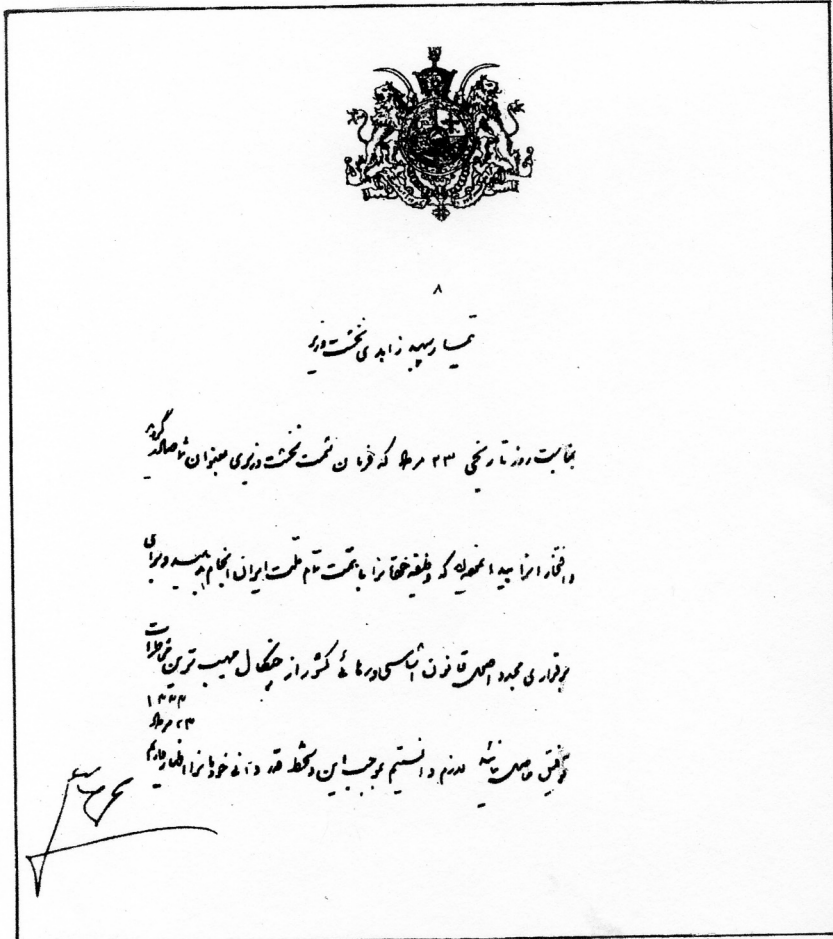 ۸
تیمسار سپهبد زاهدی نخست وزیر
بمناسبت روز تاریخی ۲۳ مرداد که فرمان سمت نخست وزیری بعنوان شما صادر گردید
و افتخار آنرا پیدا نمودید که وظیفه خود را با همت تمام ملت ایران انجام دهید و برای
برقراری مجدد اصول قانون اساسی و رهائی کشور از چنگال مهیب ترین مخاطرات
توفیق حاصل نمائید لازم دانستیم بموجب این دستخط قدردانی خود را اظهار داریم
۲۳ مرداد
۱۳۳۳